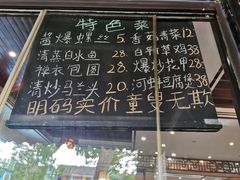 特色菜
酱爆螺丝 5. 香菇青菜12
清蒸白水鱼 28. 白平草鸡38
裤衣包圆 28. 爆炒花甲28
清炒马兰头 20. 河虾豆腐煲38
明码实价 童叟无欺